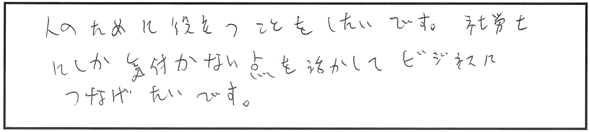 人のために役立つことをしたいです。社労士
にしか気付かない点を活かしてビジネスに
つなげたいです。